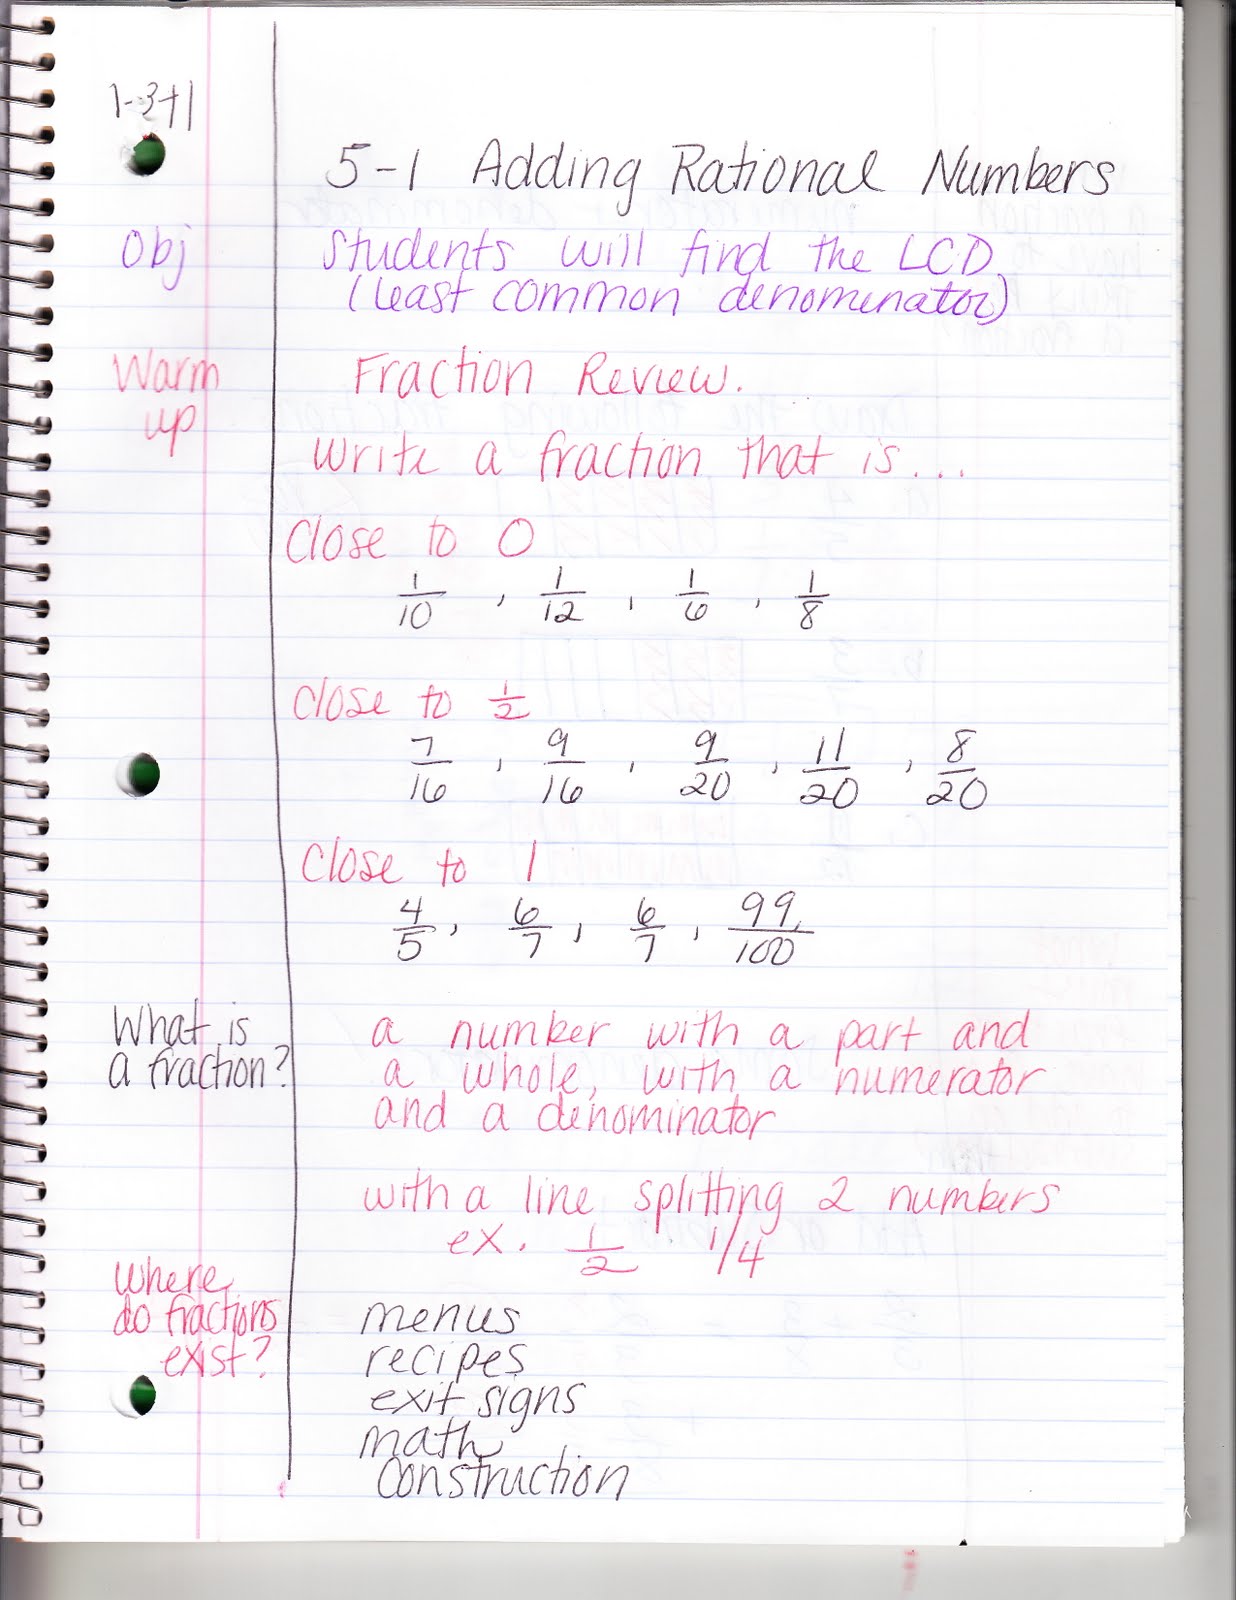 1-3-11
5-1 Adding Rational Numbers
Obj Students will find the LCD
(least common denominator)
Warm up Fraction Review.
Write a fraction that is...
Close to 0
1/10 , 1/12 , 1/6 , 1/8
Close to 1/2
7/16 , 9/16 , 9/20 , 11/20 , 8/20
Close to 1
4/5 , 6/7 , 6/7 , 99/100
What is
a fraction?
a number with a part and
a whole, with a numerator
and a denominator
with a line splitting 2 numbers
ex. 1/2 1/4
Where
do fractions
exist?
menus
recipes
exit signs
math
construction